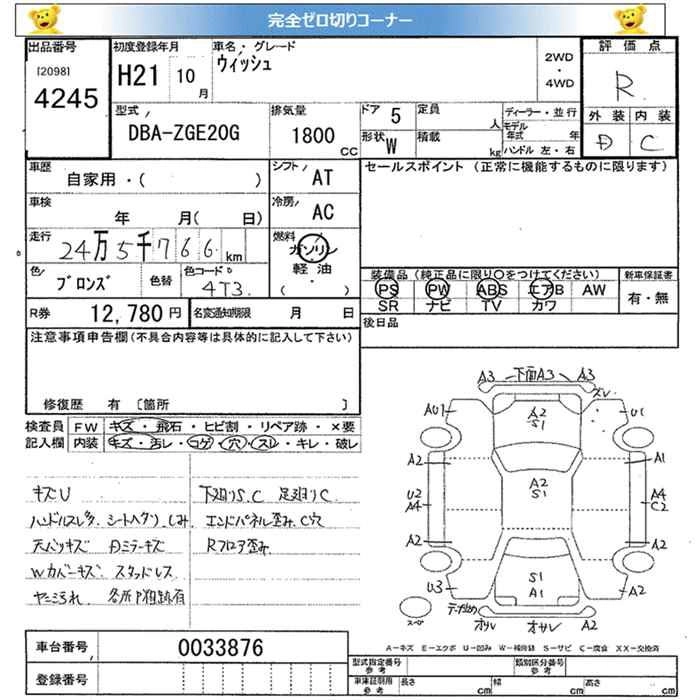 完全ゼロ切りコーナー
出品番号 初度登録年月 車名・グレード 評価点
[2098] 4245 H21 10月 ウィッシュ 2WD・4WD R
型式 排気量 ドア 5 定員 人 ディーラー・並行 外装 内装
DBA-ZGE20G 1800 CC 形状 W 積載 kg モデル年式 年 ハンドル 左・右 D C
車歴 自家用・( ) シフト AT セールスポイント (正常に機能するものに限ります)
車検 年 月( 日) 冷房 AC
走行 24万5千766 km 燃料 ガソリン
軽油
( ・ )
色 ブロンズ 色替 色コード 4T3. 装備品 (純正品に限り○をつけてください) 新車保証書
PS PW ABS エアB AW 有・無
SR ナビ TV カワ
R券 12,780 円 名変通知期限 月 日 後日品
注意事項申告欄(不具合内容等は具体的に記入して下さい)
修復歴 有 〔箇所 〕
検査員 FW キズ・飛石・ヒビ割・リペア跡・×要
記入欄 内装 キズ・汚レ・コゲ・穴・スレ・キレ・破レ
キズU 下廻りS.C 足廻りC
ハンドルスレ多. シートヘタリ. しみ エンドパネル歪み. C穴
天バリキズ Dミラーキズ Rフロア歪み
Wカバーキズ スタッドレス
ヤニ汚れ. 各所P粗跡有
A3 下面A3 A3
AU1 A2 S1 ズレ U1
A2 A1
U2 A4 A2 S1 A4 C2
A2 A2
U3 S1 A1 A2
スペア オサレ オサレ A2
A-キズ E-エクボ U-凹み W-補修跡 S-サビ C-腐食 XX-交換済
車台番号 0033876 型式指定番号 参考 類別区分番号 参考
登録番号 車庫証明用 参考 長さ cm 幅 cm 高さ cm